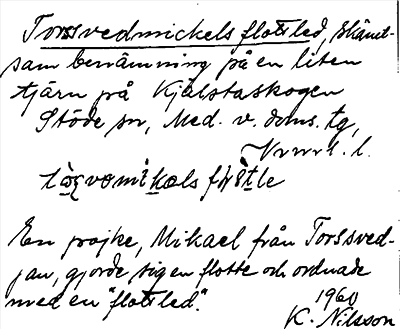 Torssvedmickels flotsled, skämt-
sam benämning på en liten
tjärn på Kjälstaskogen
Stöde sn, Med. v. doms. tg,
En pojke, Mikael från Torssved-
jan, gjorde sig en flotte och ordnade
med en "flotsled".
1960
K. Nilsson